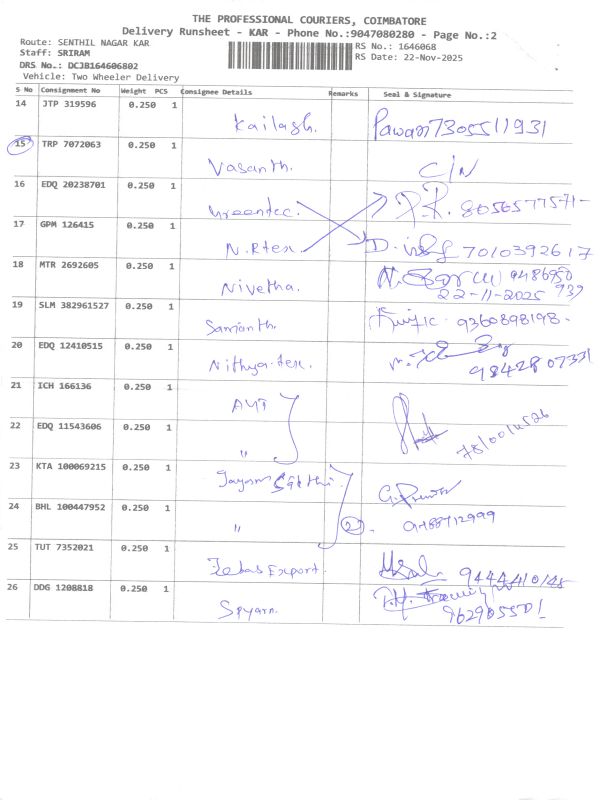 THE PROFESSIONAL COURIERS, COIMBATORE
Delivery Runsheet - KAR - Phone No.:9047080280 - Page No.:2
Route: SENTHIL NAGAR KAR
RS No.: 1646068
Staff: SRIRAM
RS Date: 22-Nov-2025
DRS No.: DCJB164606802
Vehicle: Two Wheeler Delivery
S No Consignment No Weight PCS Consignee Details Remarks Seal & Signature
14 JTP 319596 0.250 1 Kailash. Pawan 7305511931
15 TRP 7072063 0.250 1 Vasanth. C/N
16 EDQ 20238701 0.250 1 Greentec. P.R. 8056577571-
17 GPM 126415 0.250 1 N.Rtex D. 7010392617
18 MTR 2692605 0.250 1 Nivetha. 9486950
22-11-2025 939
19 SLM 382961527 0.250 1 Samanth. 9360898198-
20 EDQ 12410515 0.250 1 Nithya-tex. 9842807331
21 ICH 166136 0.250 1 AMT
22 EDQ 11543606 0.250 1 "
23 KTA 100069215 0.250 1 Jayam Sakthi
24 BHL 100447952 0.250 1 " 2
25 TUT 7352021 0.250 1 Export. 9444410148
26 DDG 1208818 0.250 1 Spyarn.